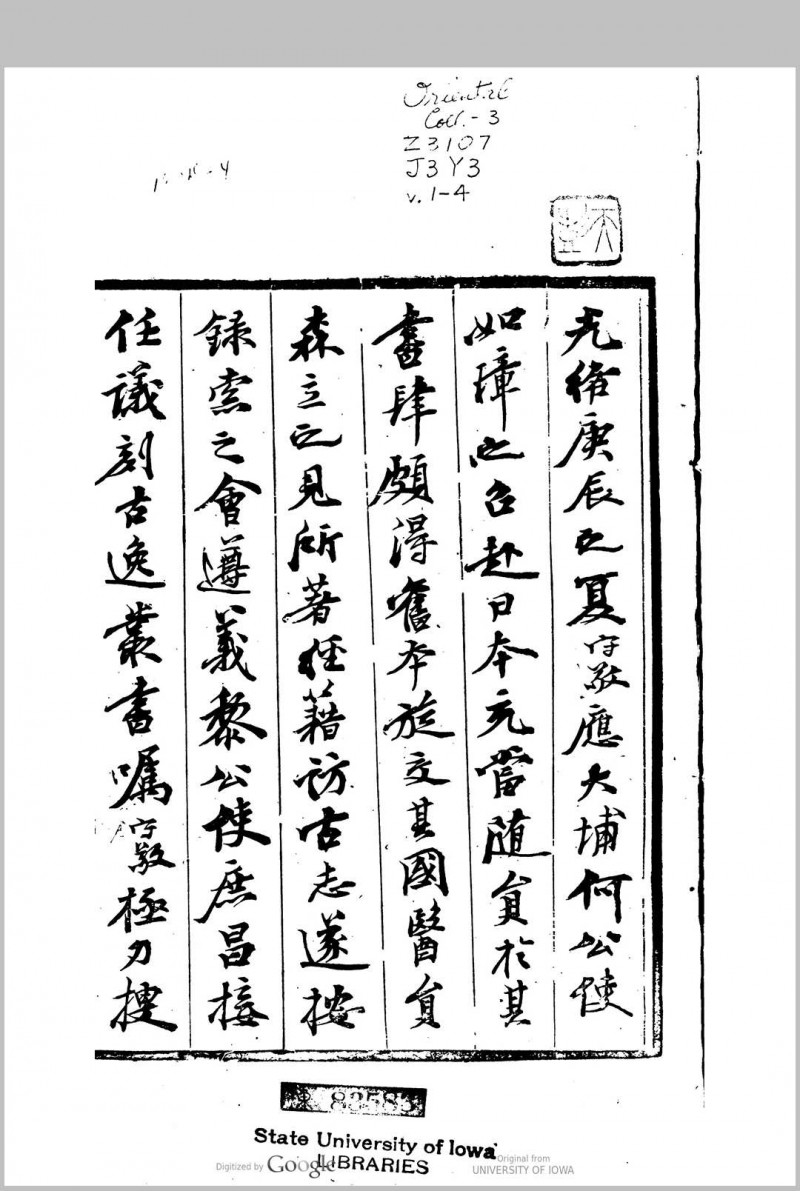 Oriental
Coll. - 3
Z3107
J3 Y3
v. 1-4
光緒庚辰之夏守敬應大埔何公使
如璋之召赴日本充當隨員於其
書肆頗得舊本旋交其國醫員
森立之見所著經籍訪古志遂按
錄索之會遵義黎公使庶昌接
任議刻古逸叢書囑守敬極力搜
83585
State University of Iowa
LIBRARIES
Digitized by Google
Original from
UNIVERSITY OF IOWA